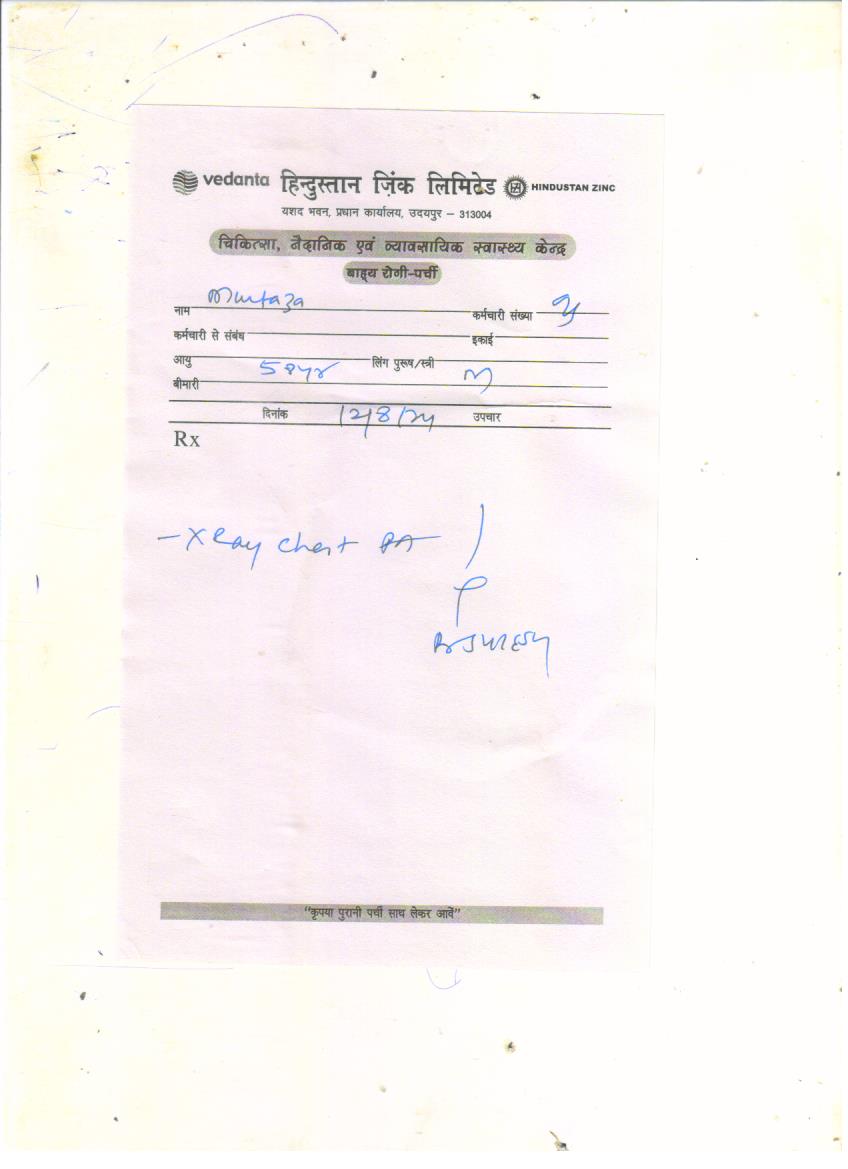 vedanta हिन्दुस्तान ज़िंक लिमिटेड HINDUSTAN ZINC
यशद भवन, प्रधान कार्यालय, उदयपुर – 313004
चिकित्सा, नैदानिक एवं व्यावसायिक स्वास्थ्य केन्द्र
बाह्य रोगी-पर्ची
नाम Murtaza कर्मचारी संख्या
कर्मचारी से संबंध इकाई
आयु 58yr लिंग पुरूष/स्त्री M
बीमारी
दिनांक 12/8/24 उपचार
Rx
- X Ray Chest PA
"कृपया पुरानी पर्ची साथ लेकर आवें"